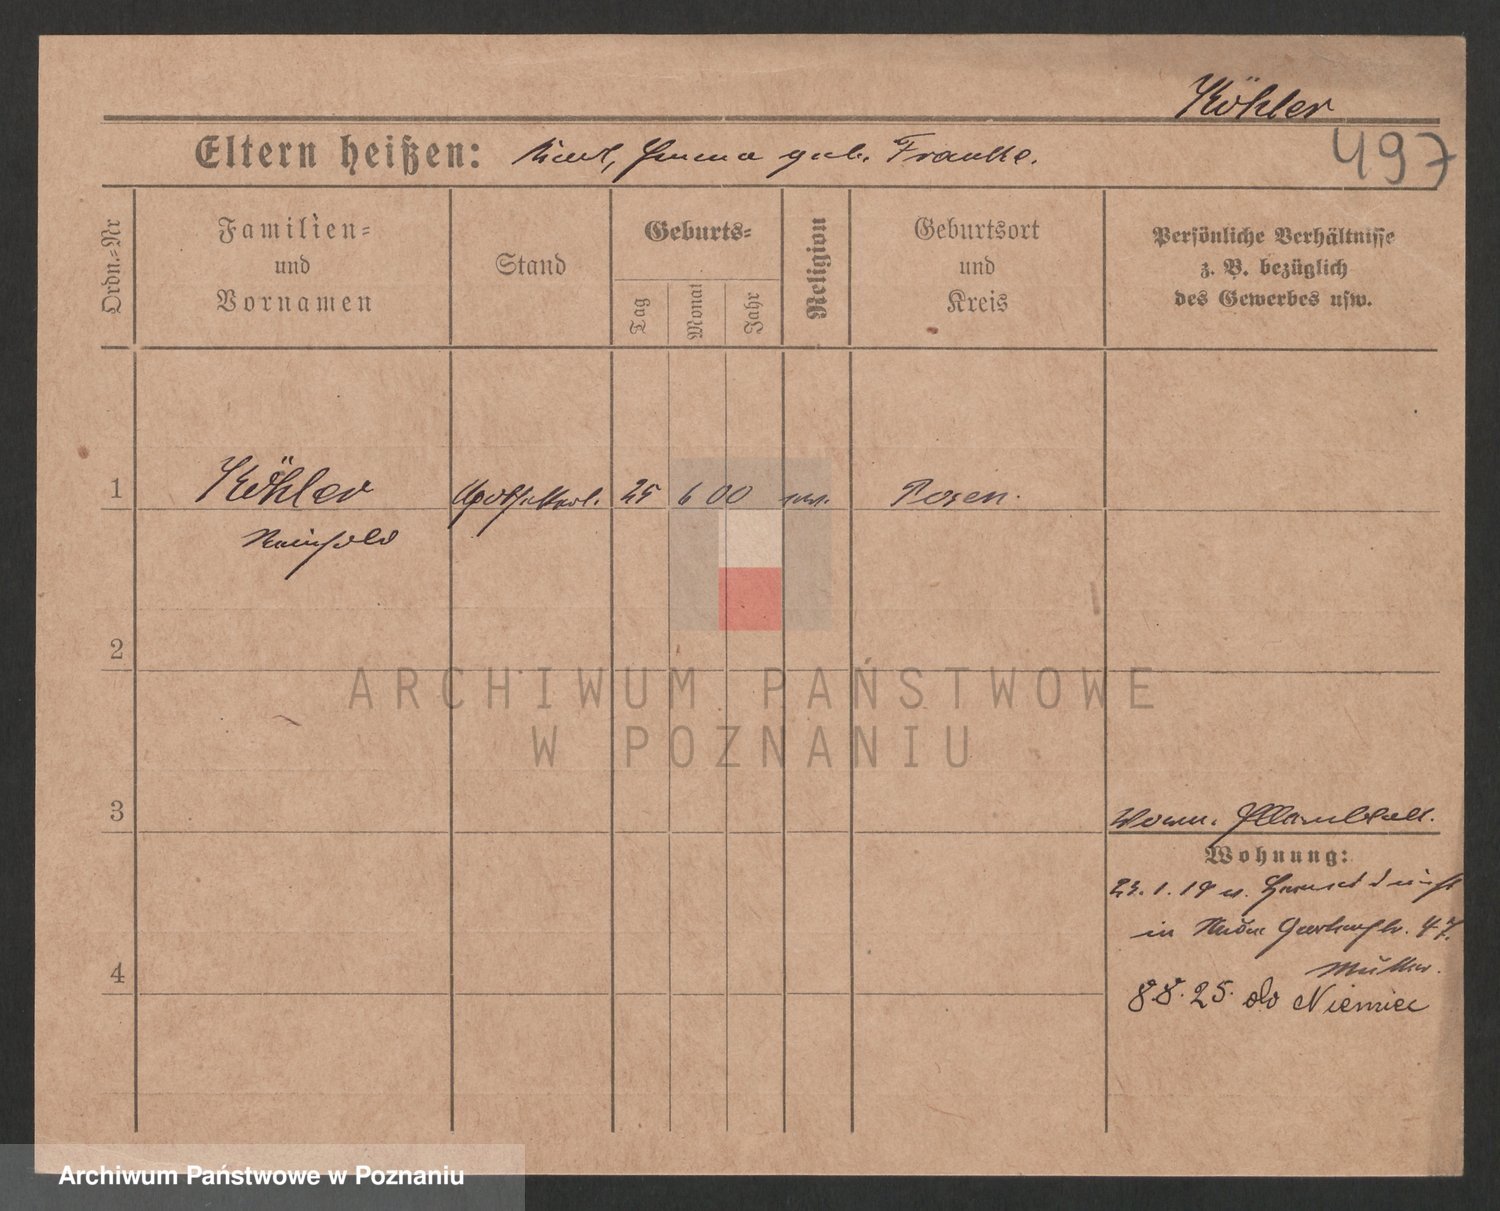 Köhler
Eltern heißen: Emma geb. Franke.
497
Ordn.-Nr
Familien-
und
Vornamen
Stand
Geburts-
Tag
Monat
Jahr
Religion
Geburtsort
und
Kreis
Persönliche Verhältnisse
z. B. bezüglich
des Gewerbes usw.
1
Köhler
25 6 00
Posen.
Reinhold
2
ARCHIWUM PAŃSTWOWE
W POZNANIU
3
Wohnung:
23.1.19 v.
in 47.
4
Mutter.
8.8.25. do Niemiec
Archiwum Państwowe w Poznaniu